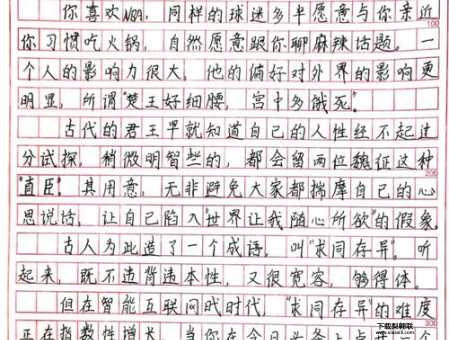 你喜欢NBA，同样的球迷多半愿意与你亲近
100
你习惯吃火锅，自然愿意跟你聊麻辣话题。一
个人的影响力很大，他的偏好对外界的影响更
明显，所谓"楚王好细腰，宫中多饿死"。
古代的君王早就知道自己的人性经不起过
分试探，稍微明智些的，都会留两位魏征这种
200
"直臣"。其用意，无非避免大家都揣摩自己的心
思说话，让自己陷入"世界让我随心所欲"的假象。
古人为此造了一个成语，叫"求同存异"。听
起来，既不违背本性，又很宽容，够得体。
但在智能互联网时代，"求同存异"的难度
300
正在指数性增长。当你在今日头条上点开一个
下载梨韩联